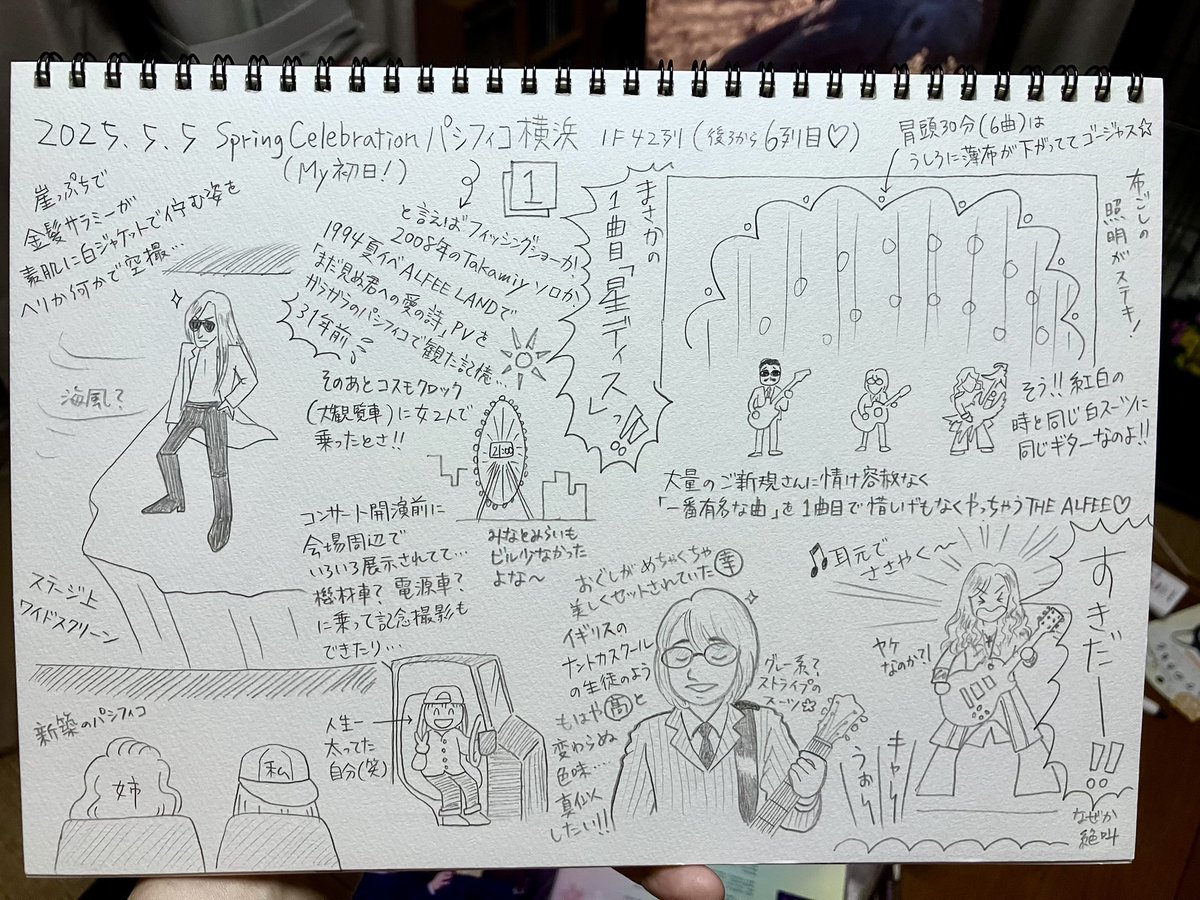 2025.5.5 Spring Celebration パシフィコ横浜 1F42列(後ろから6列目♡)
(My初日!)
1
冒頭30分(6曲)は
うしろに薄布が下がっててゴージャス☆
布ごしの
照明がステキ!
崖っぷちで
金髪サラミーが
素肌に白ジャケットで佇む姿を
ヘリか何かで空撮…
海風?
ステージ上
ワイドスクリーン
と言えばフィッシングショーか
2008年のTakamiyソロか
1994夏イベALFEE LANDで
「まだ見ぬ君への愛の詩」PVを
ガラガラのパシフィコで観た記憶…
31年前
そのあとコスモクロック
(大観覧車)に女2人で
乗ったとさ!!
21:00
みなとみらいも
ビル少なかった
よな〜
まさかの
1曲目「星ディス」っ!!
そう!!紅白の
時と同じ白スーツに
同じギターなのよ!!
大量のご新規さんに情け容赦なく
「一番有名な曲」を1曲目で惜しげもなくやっちゃうTHE ALFEE♡
コンサート開演前に
会場周辺で
いろいろ展示されてて…
機材車?電源車?
に乗って記念撮影も
できたり…
人生一
太ってた
自分(笑)
新築のパシフィコ
姉
私
おぐしがめちゃくちゃ
美しくセットされていた幸
イギリスの
ナントカスクール
の生徒のよう
もはや高と
変わらぬ
色味…
真似
したい!!
グレー系?
ストライプの
スーツ☆
♫耳元で
ささやく〜
ヤケ
なのか?!
キャー
うおー
すきだー!!
なぜか
絶叫